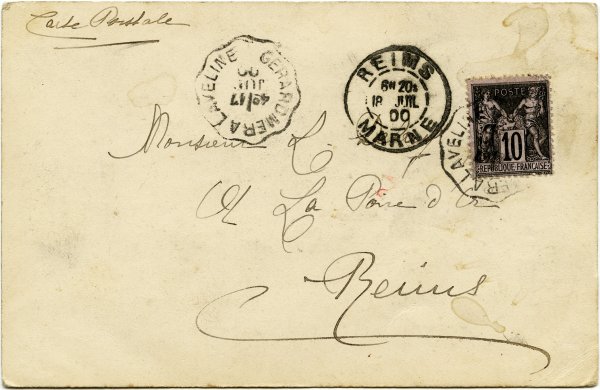 Carte Postale
GERARDMER A LAVELINE
4E/17
JUIL
00
REIMS
6H 20S
18 JUIL
00
MARNE
POSTE
10
REPUBLIQUE FRANÇAISE
A LAVELINE
Monsieur L.
La d'Or
Reims